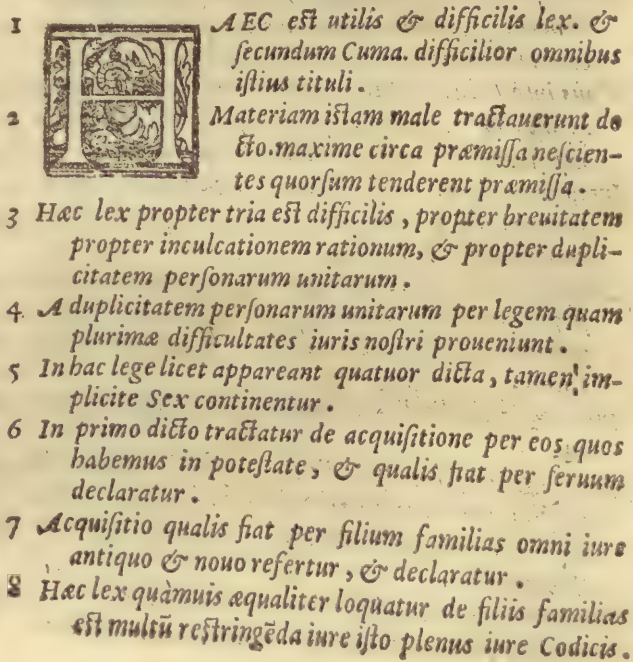 1 HAEC est utilis & difficilis lex. &
secundum Cuma. difficilior omnibus
istius tituli.
2 Materiam istam male tractauerunt do
cto. maxime circa præmissa nescien-
tes quorsum tenderent præmissa.
3 Hæc lex propter tria est difficilis, propter breuitatem
propter inculcationem rationum, & propter dupli-
citatem personarum unitarum.
4 A duplicitatem personarum unitarum per legem quam
plurimæ difficultates iuris nostri proueniunt.
5 In hac lege licet appareant quatuor dicta, tamen im-
plicite Sex continentur.
6 In primo dicto tractatur de acquisitione per eos quos
habemus in potestate, & qualis fiat per seruum
declaratur.
7 Acquisitio qualis fiat per filium familias omni iure
antiquo & nouo refertur, & declaratur.
8 Hæc lex quàmuis æqualiter loquatur de filiis familias
est multũ restringẽda iure isto plenus iure Codicis.